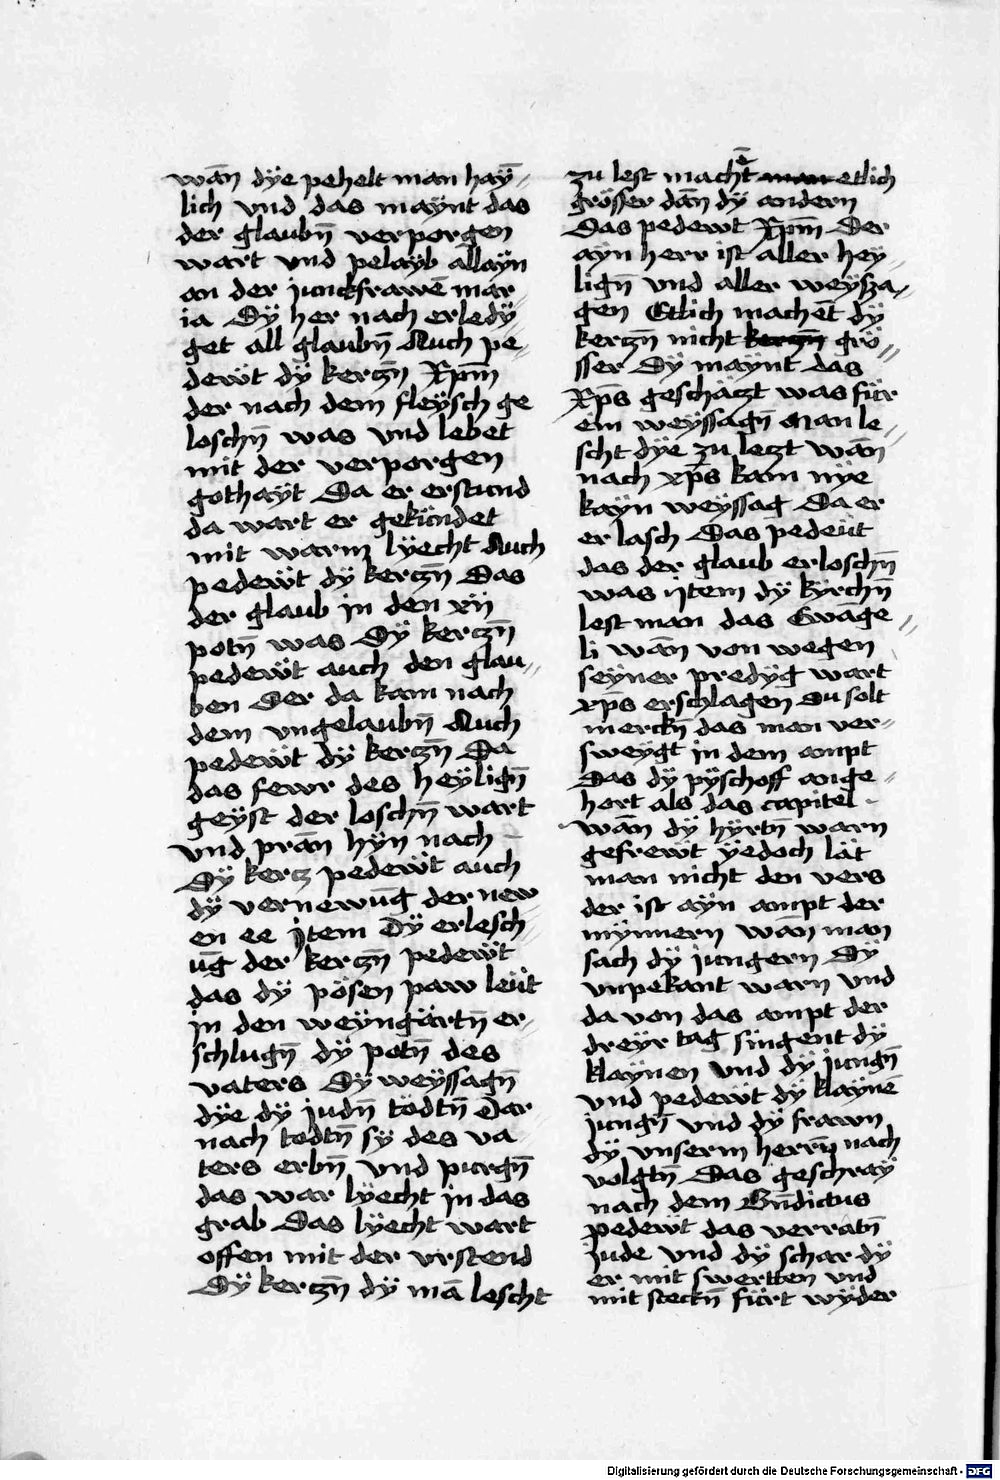 wān dÿe pehelt man haÿ//
lich vnd das maÿnt das
der glaubn̄ verporgen
wart vnd pelaÿb allaÿn
an der junckfrawē mar
ia Dÿ her nach erledÿ//
get all glaubn̄ Auch pe//
dewt̄ dÿ kerczn̄ Xp̄m
der nach dem fleÿsch ge
loschn̄ was vnd lebet
mit der verporgen
gothaÿt Da er erstund
da wart er gekündet
mit warm lÿecht Auch
pedewt̄ dÿ kerczn̄ Das
der glaub in den xij
potn̄ was Dÿ kerczn̄
pedewt̄ auch den glau//
ben Der da kam nach
dem vngelaubn̄ Auch
pedewt̄ dÿ kerczn̄ Da
das fewr des heÿlign̄
geÿst der loschn̄ wart
vnd prān hÿn nach –
Dÿ kercz pedewt̄ auch
dÿ vernewūg der new
en ee jtem Dÿ erlesch//
ūg der kerczn̄ pedewt̄
das dÿ pösen paw leüt
in den weÿngärtn̄ er//
schlugn̄ dÿ potn̄ des
vaters Dÿ weÿssagn̄
dÿe dÿ judn̄ tödtn̄ Dar
nach tödtn̄ sÿ des va//
ters erbn̄ vnd purgn̄
das war lÿecht in das
grab Das lÿecht wart
offen mit der vrstend
Dÿ kerczn̄ dÿ mā lescht
zu lest machēt etlich
grösser dān dÿ andern
Das pedewt Xp̄m Der
aÿn herr ist aller heÿ//
lign̄ vnd aller weÿssa//
gen Etlich machēt dÿ
kerczn̄ nicht grö//
sser Dÿ maÿnt das
Xp̄s geschäczt was für
ein weÿssagn̄ Man le//
scht dÿe zu leczt wān
nach xp̄s kam nÿe
kaÿn weÿssag Da er
er lasch Das pedeüt
das der glaub erloschn̄
was ijtem dÿ kÿrchn̄
lest man das Ewāge//
li wān von wegen
seÿner predÿg wart
xp̄s erschlagen Du solt
merckn̄ das man ver//
sweÿgt in dem ampt
Das dÿ pÿschoff ange//
hort als das capitel ·
wān dÿ hÿrtn̄ warn
gefrewt ÿedoch lät
man nicht den vers
der ist aÿn ampt der
mÿnnern wān man
sach dÿ jungern Dÿ
vnpekant warn vnd
da von das ampt der
dreÿr tag singent dÿ
klaÿnen vnd dÿ jungn̄
vnd pedewt̄ dÿ klaÿnē
jungn̄ vnd dÿ frawn
dÿ vnserm herrn̄ nach
volgtn̄ Das geschraÿ
nach dem Bn̄dictus
pedewt̄ das verratn̄
Jude vnd dÿ schar dÿ
er mit swertten vnd
mit steckn̄ fürt wÿder
Digitalisierung gefördert durch die Deutsche Forschungsgemeinschaft - DFG